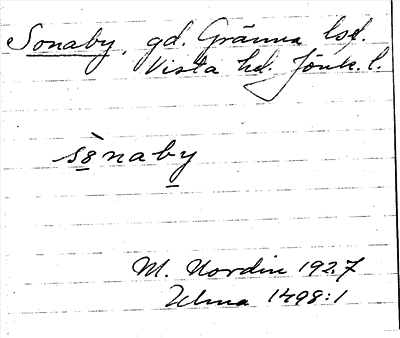 Sonaby, gd. Gränna lsd.
Vista hd. Jönk. l.
sònaby
M. Nordin 1927
Ulma 1498:1